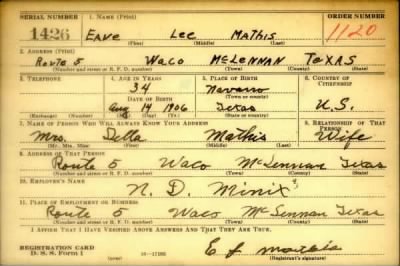 SERIAL NUMBER 1. NAME (Print) ORDER NUMBER
1426 Eave Lee Mathis 1120
(First) (Middle) (Last)
2. ADDRESS (Print)
Route 5 Waco McLennan Texas
(Number and street or R. F. D. number) (Town) (County) (State)
3. TELEPHONE 4. AGE IN YEARS 5. PLACE OF BIRTH 6. COUNTRY OF CITIZENSHIP
34 Navarro
DATE OF BIRTH (Town or county)
Aug 14 1906 Texas U.S.
(Exchange) (Number) (Mo.) (Day) (Yr.) (State or country)
7. NAME OF PERSON WHO WILL ALWAYS KNOW YOUR ADDRESS RELATIONSHIP OF THAT PERSON
Mrs. Della Mathis Wife
(Mr., Mrs., Miss) (First) (Middle) (Last)
8. ADDRESS OF THAT PERSON
Route 5 Waco McLennan Texas
(Number and street or R. F. D. number) (Town) (County) (State)
10. EMPLOYER'S NAME
N. D. Minix
11. PLACE OF EMPLOYMENT OR BUSINESS
Route 5 Waco McLennan Texas
(Number and street or R. F. D. number) (Town) (County) (State)
I AFFIRM THAT I HAVE VERIFIED ABOVE ANSWERS AND THAT THEY ARE TRUE.
REGISTRATION CARD
D. S. S. Form 1 Mathis
(Registrant's signature)